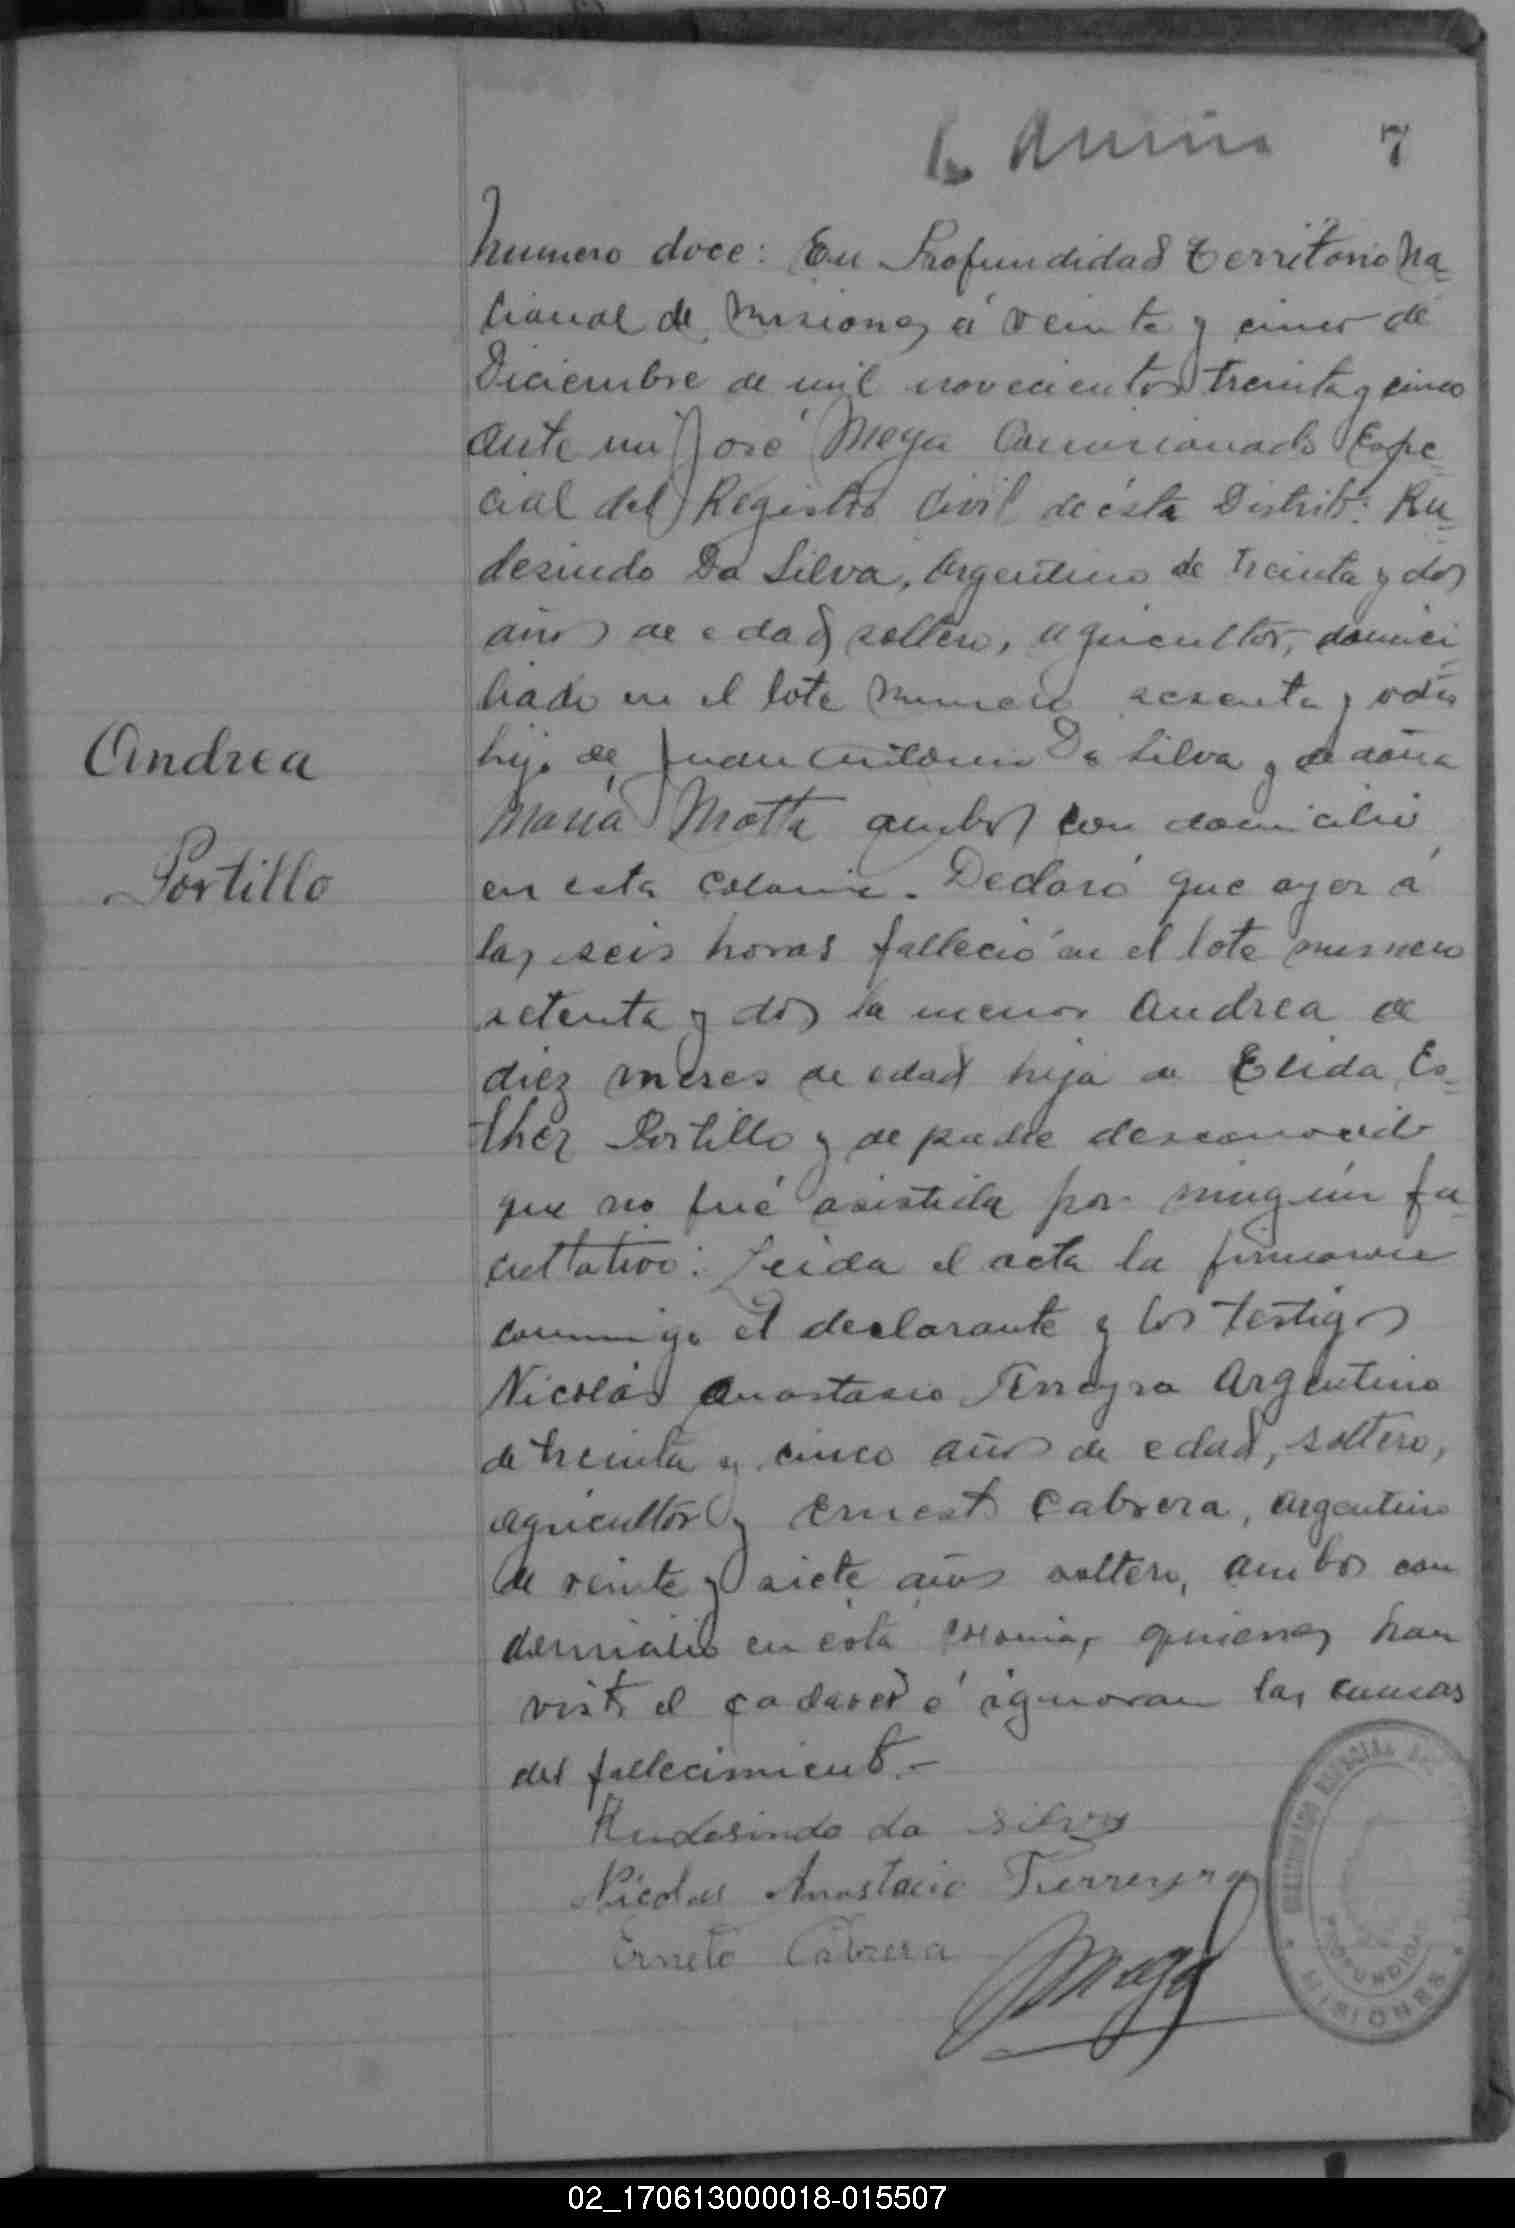 7
Numero doce: En Profundidad Territorio Na-
cional de Misiones á veinte y cinco de
Diciembre de mil novecientos treinta y cinco
ante mi José Meza Comisionado Espe-
cial del Registro Civil de ésta Distrito: Ru-
desindo Da Silva, Argentino de treinta y dos
años de edad soltero, agricultor, domici-
liado en el lote numero sesenta y ocho
hijo de Juan Antonio Da Silva y de doña
María Motta ambos con domicilio
en esta colonia. Declaró que ayer á
las seis horas falleció en el lote numero
setenta y dos la menor Andrea de
diez meses de edad hija de Elida Es-
ther Portillo y de padre desconocido
que no fué asistida por ningún fa-
cultativo: Leida el acta la firmaron
conmigo el declarante y los testigos
Nicolás Anastasio Ferreyra Argentino
de treinta y cinco años de edad, soltero,
agricultor y Ernesto Cabrera, argentino
de veinte y siete años soltero, ambos con
domicilio en ésta colonia, quienes han
visto el cadaver é ignoran las causas
del fallecimiento.-
Andrea
Portillo
Rudesindo da Silva
Nicolas Anastacio Ferreyra
Erneto Cabrera
PROFUNDIDAD
MISIONES
02_170613000018-015507